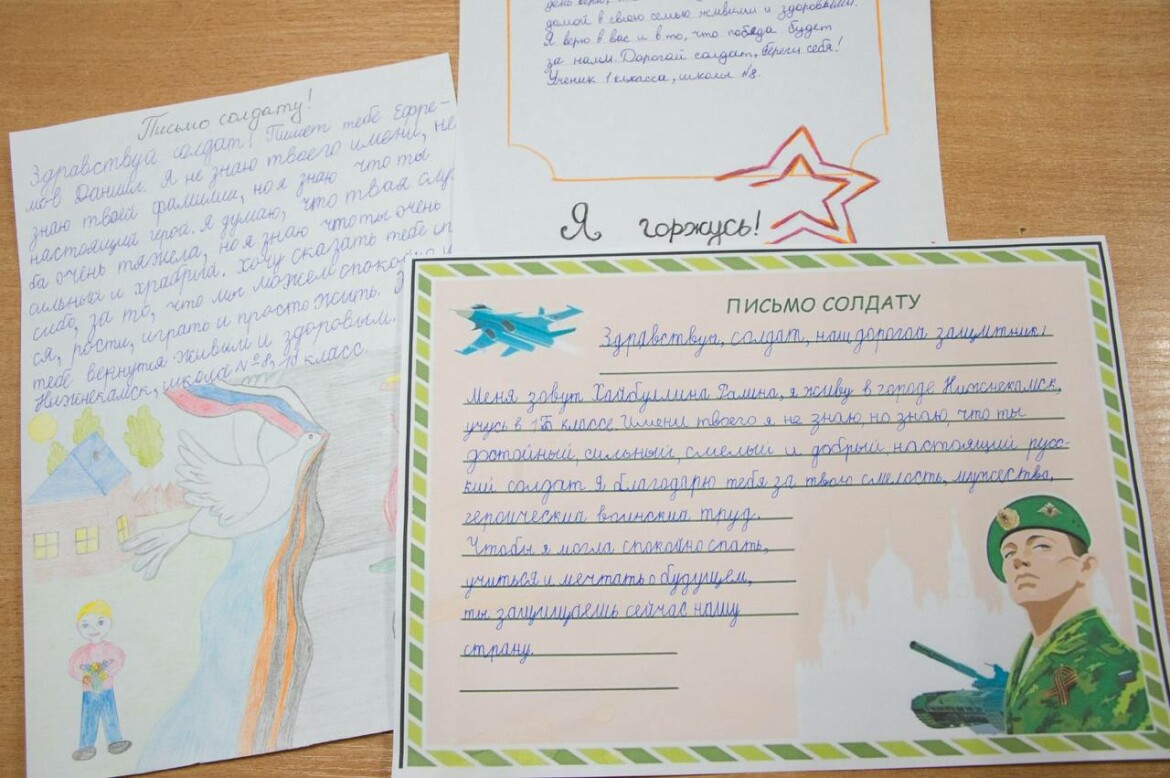 Письмо солдату!
Здравствуй солдат! Пишет тебе Ефре-
мов Даниил. Я не знаю твоего имени, не
знаю твоей фамилии, но я знаю что ты
настоящий герой. Я думаю, что твая слу
ба очень тяжела, но я знаю что ты очень
сильный и храбрый. Хочу сказать тебе сп
сибо, за то, что мы можем спокойно у
ся, рости, играть и просто жить.
тебе вернутся живым и здоровым.
Нижнекамск, школа №8, класс.
домой в свою семью живыми и здоровыми.
Я верю в вас и в то, что победа будет
за нами. Дорогой солдат, береги себя!
Ученик 1 класса, школы №8.
Я горжусь!
ПИСЬМО СОЛДАТУ
Здравствуй, солдат, наш дорогой защитник!
Меня зовут Хайбуллина Рамина, я живу в городе Нижнекамск,
учусь в 1Б классе. Имени твоего я не знаю, но знаю, что ты
достойный, сильный, смелый и добрый настоящий русс-
кий солдат. Я благодарю тебя за твою смелость, мужество,
героический воинский труд.
Чтобы я могла спокойно спать,
учиться и мечтать о будущем,
ты защищаешь сейчас нашу
страну.